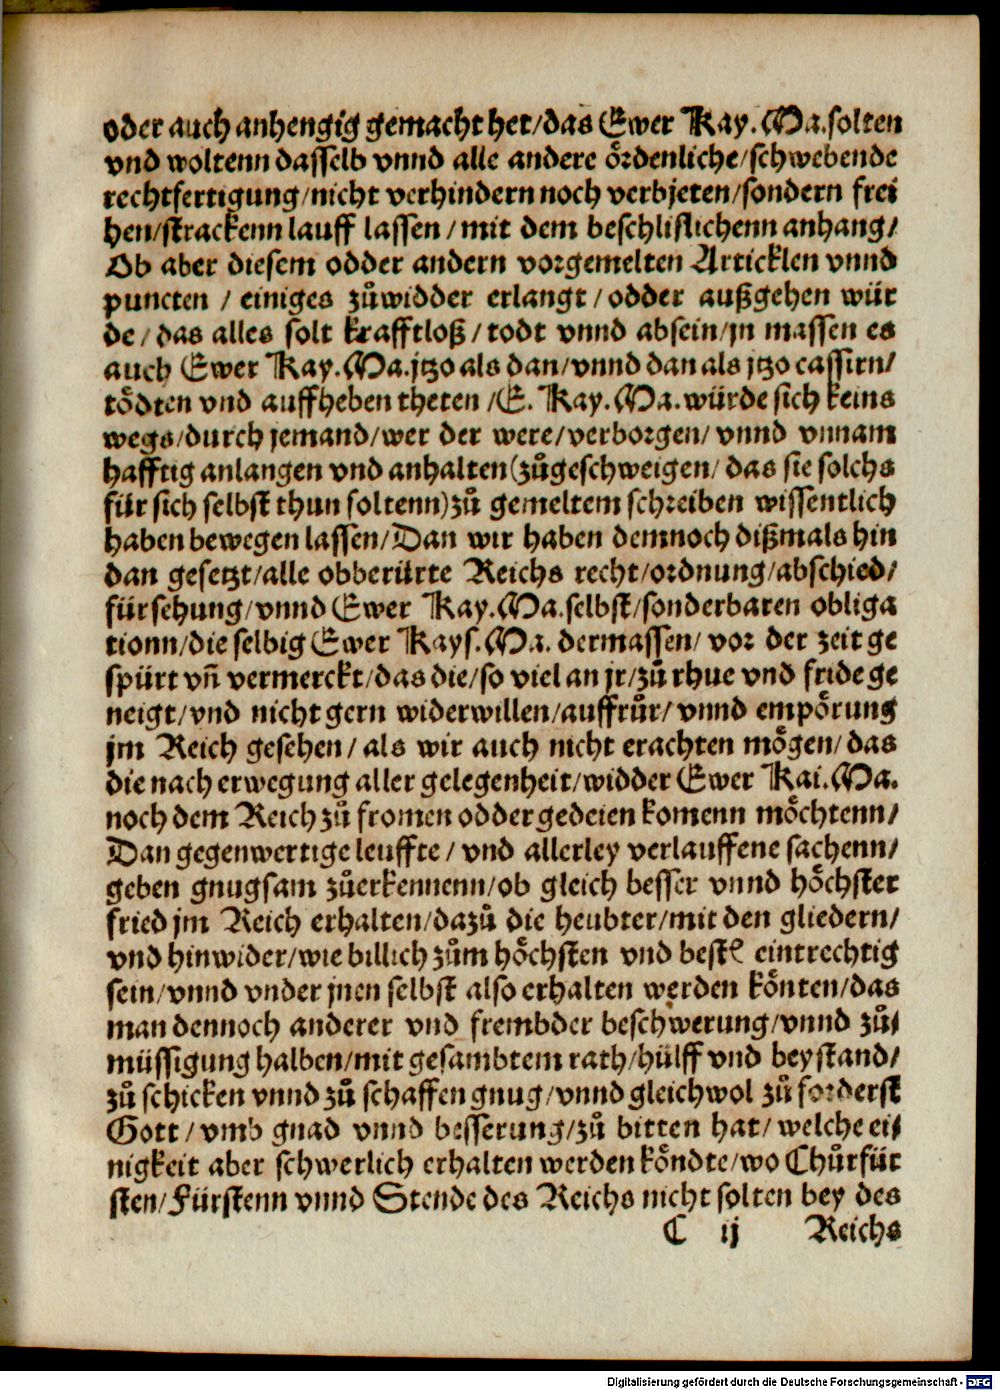 oder auch anhengig gemacht het/das Ewer Kay.Ma.solten
vnd woltenn dasselb vnnd alle andere ördenliche/schwebende
rechtfertigung/nicht verhindern noch verbieten/sondern frei
hen/strackenn lauff lassen/mit dem beschlißlichenn anhang/
Ob aber diesem odder andern vorgemelten Articklen vnnd
puncten / einiges zůwidder erlangt/odder außgehen wür
de/das alles solt krafftloß/todt vnnd absein/jn massen es
auch Ewer Kay.Ma.jtzo als dan/vnnd dan als jtzo cassirn/
tödten vnd auffheben theten/E. Kay.Ma.würde sich keins
wegs/durch jemand/wer der were/verborgen/vnnd vnnam
hafftig anlangen vnd anhalten(zůgeschweigen/das sie solchs
für sich selbst thun soltenn)zů gemeltem schreiben wissentlich
haben bewegen lassen/Dan wir haben demnoch dißmals hin
dan gesetzt/alle obberürte Reichs recht/ordnung/abschied/
fürsehung/vnnd Ewer Kay.Ma.selbst/sonderbaren obliga
tionn/die selbig Ewer Kays.Ma. dermassen/vor der zeit ge
spürt vñ vermerckt/das die/so viel an jr/zů rhue vnd fride ge
neigt/vnd nicht gern widerwillen/auffrůr/vnnd empörung
jm Reich gesehen/als wir auch nicht erachten mögen/das
die nach erwegung aller gelegenheit/widder Ewer Kai.Ma.
noch dem Reich zů fromen odder gedeien komenn möchtenn/
Dan gegenwertige leuffte/vnd allerley verlauffene sachenn/
geben gnugsam zůerkennenn/ob gleich besser vnnd höchster
fried jm Reich erhalten/dazů die heubter/mit den gliedern/
vnd hinwider/wie billich zům höchsten vnd bestꝭ eintrechtig
sein/vnnd vnder jnen selbst also erhalten werden könten/das
man dennoch anderer vnd frembder beschwerung/vnnd zů⸗
müssigung halben/mit gesambtem rath/hülff vnd beystand/
zů schicken vnnd zů schaffen gnug/vnnd gleichwol zů forderst
Gott/vmb gnad vnnd besserung/zů bitten hat/welche ei⸗
nigkeit aber schwerlich erhalten werden köndte/wo Chůrfür
sten/Fürstenn vnnd Stende des Reichs nicht solten bey des
C ij Reichs
Digitalisierung gefördert durch die Deutsche Forschungsgemeinschaft - DFG